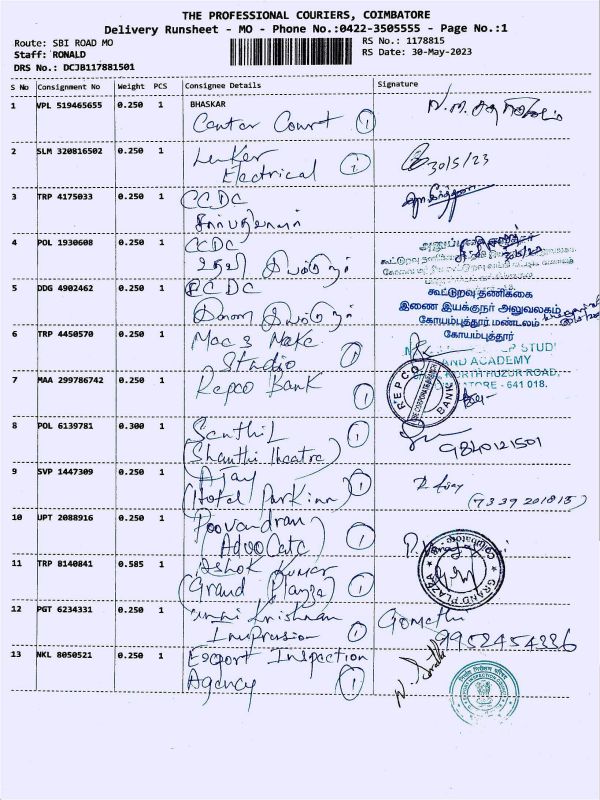 THE PROFESSIONAL COURIERS, COIMBATORE
Delivery Runsheet - MO - Phone No.:0422-3505555 - Page No.:1
Route: SBI ROAD MO
RS No.: 1178815
Staff: RONALD
RS Date: 30-May-2023
DRS No.: DCJB117881501
S No Consignment No Weight PCS Consignee Details Signature
1 VPL 519465655 0.250 1 BHASKAR
Center Court 1
2 SLM 320816502 0.250 1
Electrical 1
30/5/23
3 TRP 4175033 0.250 1 CCDC
4 POL 1930608 0.250 1 CCDC
5 DDG 4902462 0.250 1 CCDC
கூட்டுறவு தணிக்கை
இணை இயக்குநர் அலுவலகம்
கோயம்புத்தூர் மண்டலம்
கோயம்புத்தூர்
6 TRP 4450570 0.250 1 Mac's Make
Studio 1
STUDI
AND ACADEMY
NORTH HUZUR ROAD,
641 018.
7 MAA 299786742 0.250 1 Repco Bank 1
REPCO BANK
8 POL 6139781 0.300 1 Senthil 1
Shanthi theatre
9840121501
9 SVP 1447309 0.250 1 Ajay
(Hotel Parkinn) 1
R Ajay
(7339 201815)
10 UPT 2088916 0.250 1 Poovandran
(Advocate) 1
11 TRP 8140841 0.585 1 Ashok Kumar
(Grand Plazza) 1
GRAND PLAZZA
12 PGT 6234331 0.250 1 Krishnan
1
Gomathi
9952454336
13 NKL 8050521 0.250 1 Export Inspection
Agency 1